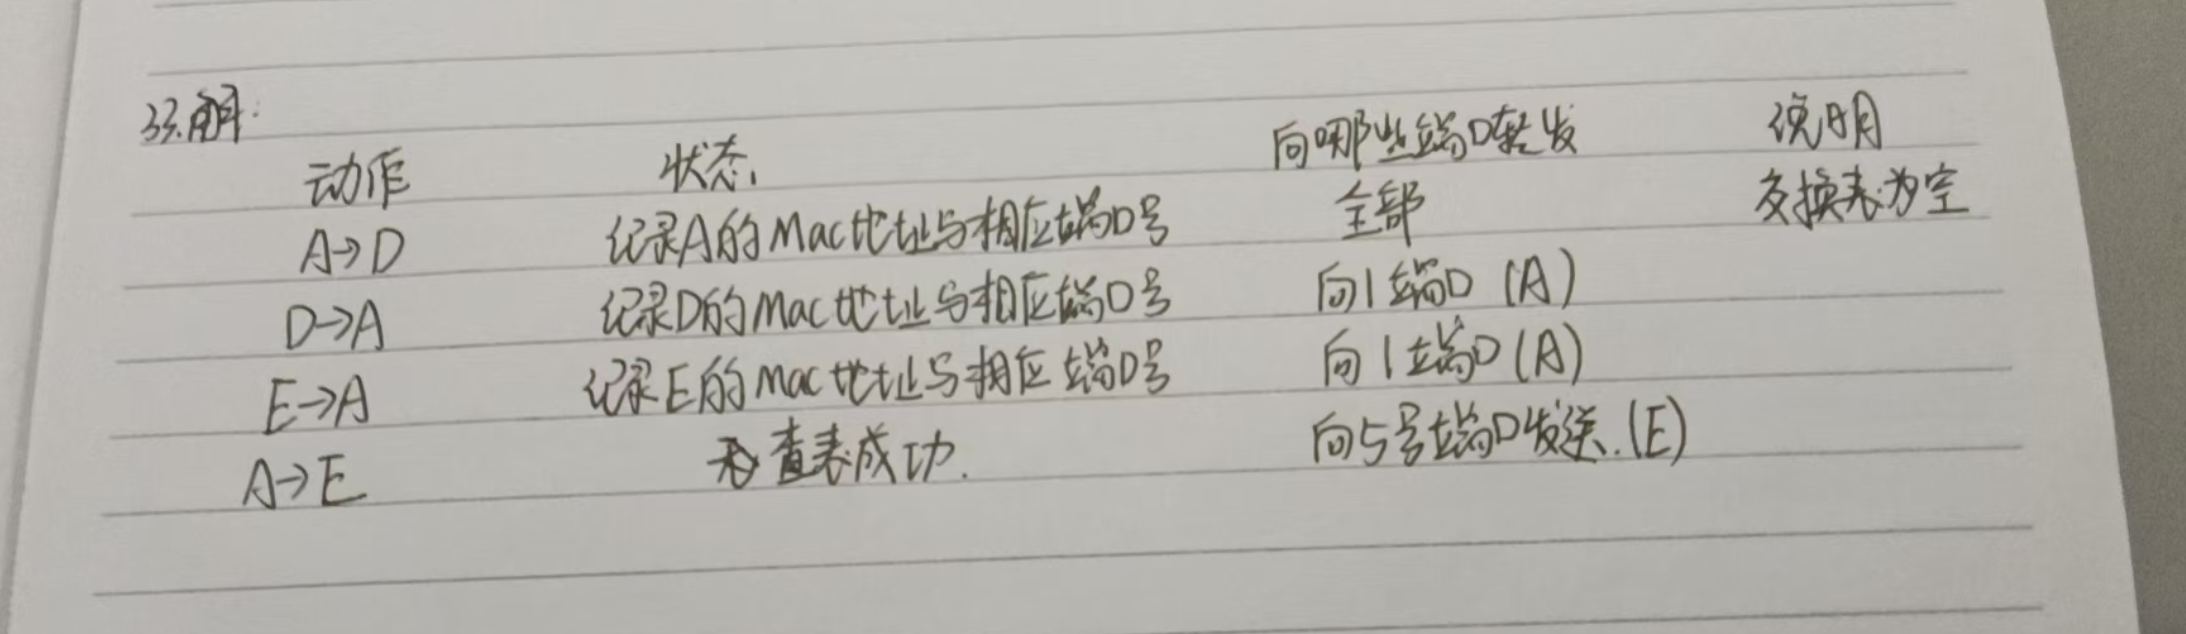 33.解:
动作 状态 向哪些端口转发 说明
A→D 记录A的Mac地址与相应端口号 全部 交换表为空
D→A 记录D的Mac地址与相应端口号 向1端口 (A)
E→A 记录E的Mac地址与相应端口号 向1端口 (A)
A→E 查表成功. 向5号端口发送.(E)